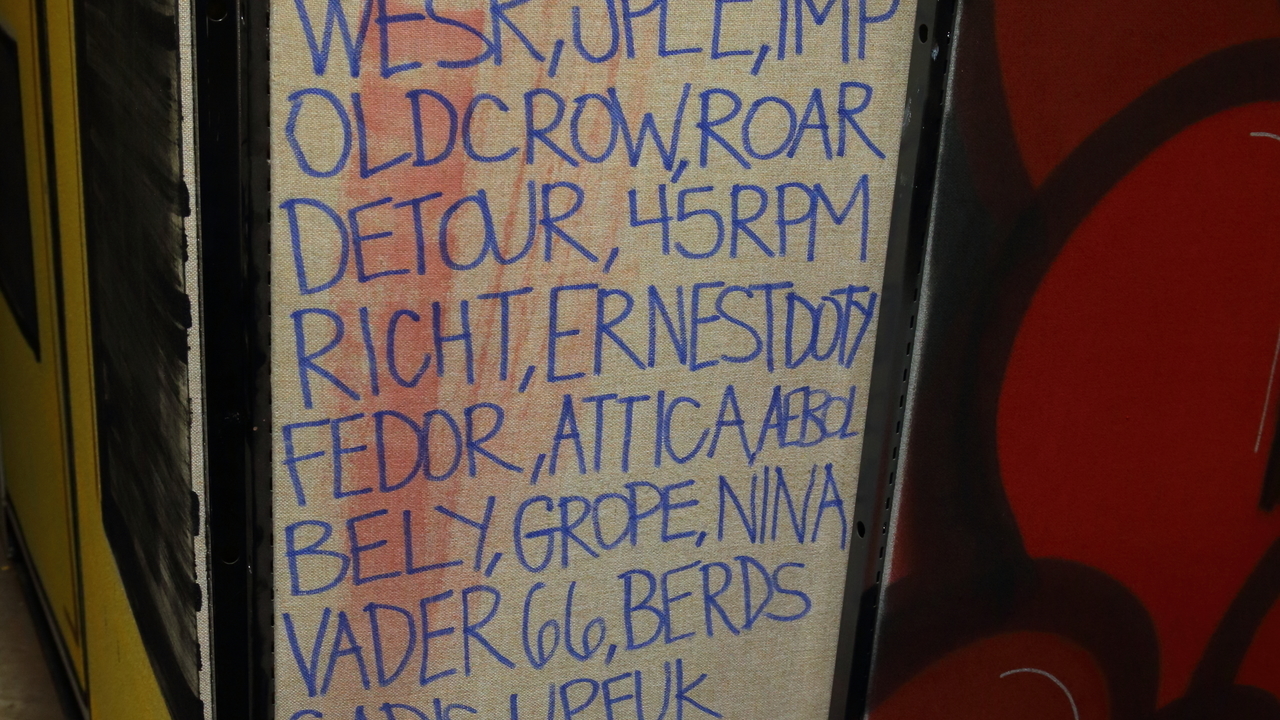 WESR, JPLE, IMP
OLDCROW, ROAR
DETOUR, 45RPM
RICHT, ERNESTDOTY
FEDOR, ATTICA, AEBOL
BELY, GROPE, NINA
VADER 66, BERDS